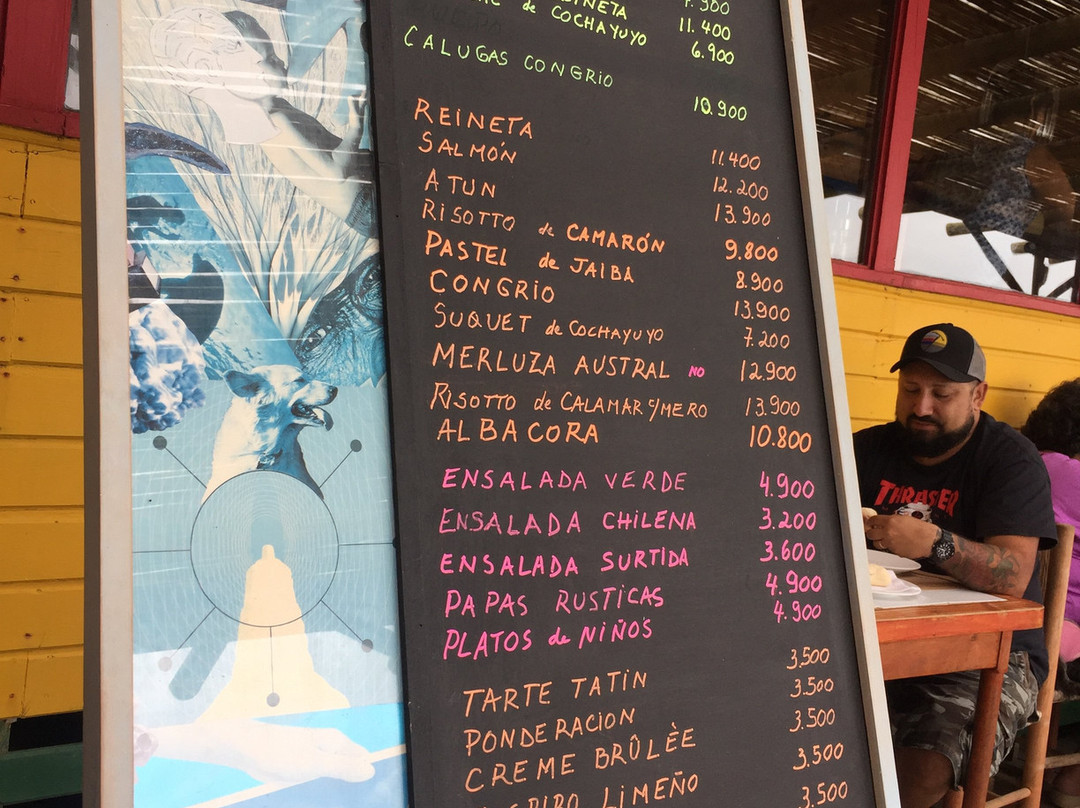 REINETA 7.900
de COCHAYUYO 11.400
6.900
CALUGAS CONGRIO
10.900
REINETA 11.400
SALMÓN 12.200
ATUN 13.900
RISOTTO de CAMARÓN 9.800
PASTEL de JAIBA 8.900
CONGRIO 13.900
SUQUET de COCHAYUYO 7.200
MERLUZA AUSTRAL NO 12.900
RISOTTO de CALAMAR c/MERO 13.900
ALBACORA 10.800
ENSALADA VERDE 4.900
ENSALADA CHILENA 3.200
ENSALADA SURTIDA 3.600
PAPAS RUSTICAS 4.900
PLATOS de NIÑOS 4.900
TARTE TATIN 3.500
PONDERACION 3.500
CREME BRÛLÈE 3.500
LIMEÑO 3.500
3.500
THRASHER